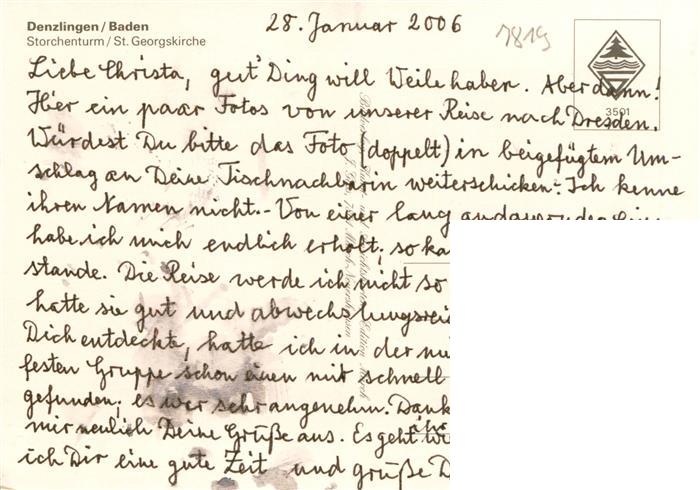 Denzlingen / Baden
Storchenturm / St. Georgskirche
28. Januar 2006
7819
3501
Liebe Christa, gut' Ding will Weile haben. Aber dann!
Hier ein paar Fotos von unserer Reise nach Dresden.
Würdest Du bitte das Foto (doppelt) in beigefügtem Um-
schlag an Deine Tischnachbarin weiterschicken:- Ich kenne
ihren Namen nicht.- Von einer lang
habe ich mich endlich erholt; so ka
stande. Die Reise werde ich nicht so
hatte sie gut und abwechslungsrei
Dich entdeckte, hatte ich in der
festen Gruppe schon einen mir schnell
gefunden; es war sehr angenehm. Dank
mir neulich Deine Grüße aus. Es geht
ich Dir eine gute Zeit und grüße D